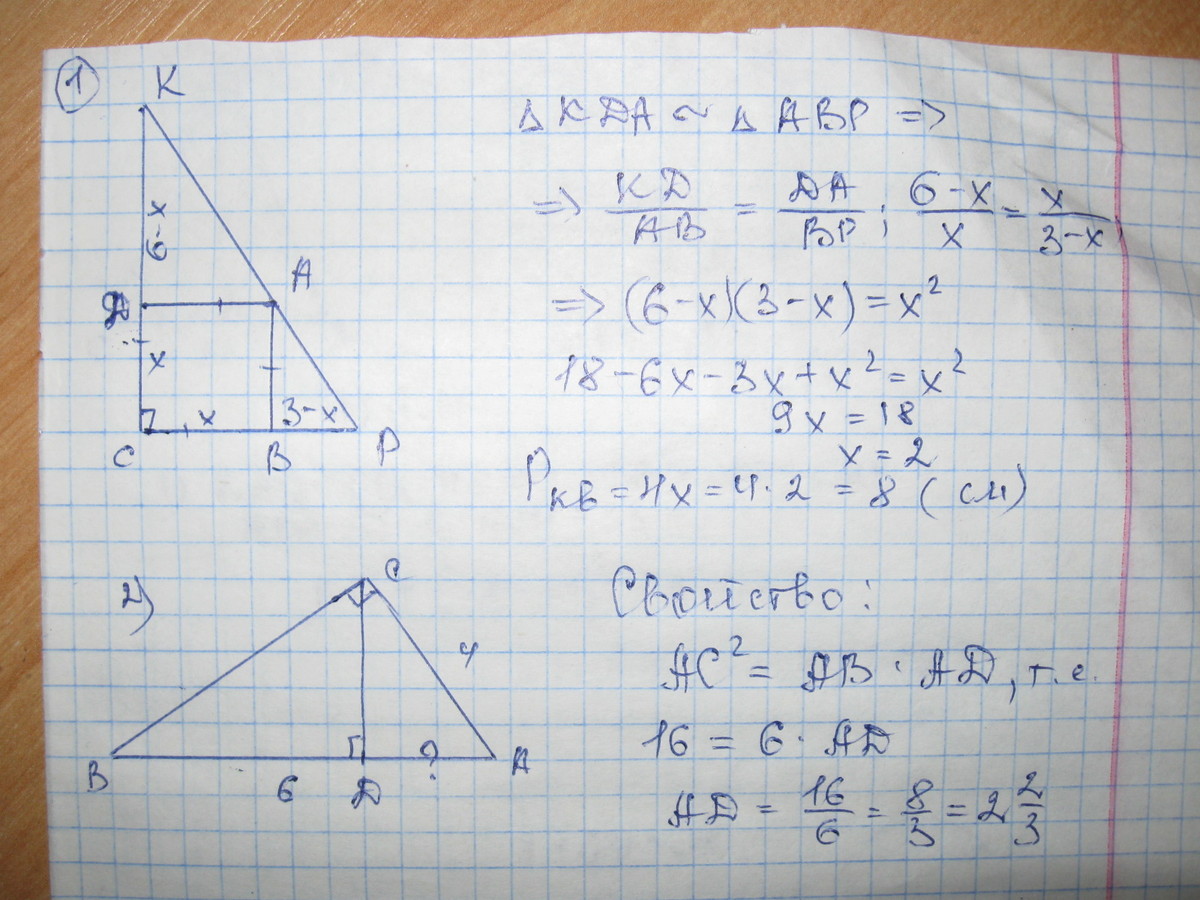 1
K
6-x
D
A
x
x
3-x
C
B
P
△ KDA ~ △ ABP =>
=> KD/AB = DA/BP ; (6-x)/x = x/(3-x)
=> (6-x)(3-x) = x²
18-6x-3x+x² = x²
9x = 18
x = 2
Pкв = 4x = 4·2 = 8 (см)
2)
C
4
B
6
D
?
A
Свойство:
AC² = AB · AD, т.е.
16 = 6 · AD
AD = 16/6 = 8/3 = 2 2/3